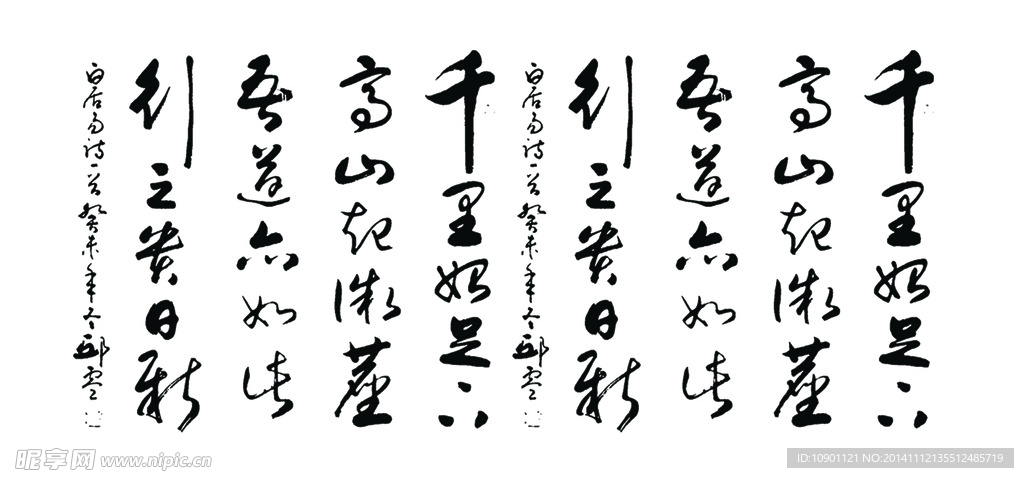 千里始足下
高山起微塵
吾道亦如此
行之貴日新
白居易詩一首癸未年冬
千里始足下
高山起微塵
吾道亦如此
行之貴日新
白居易詩一首癸未年冬
昵享网 www.nipic.cn
ID:10901121 NO:20141112135512485719